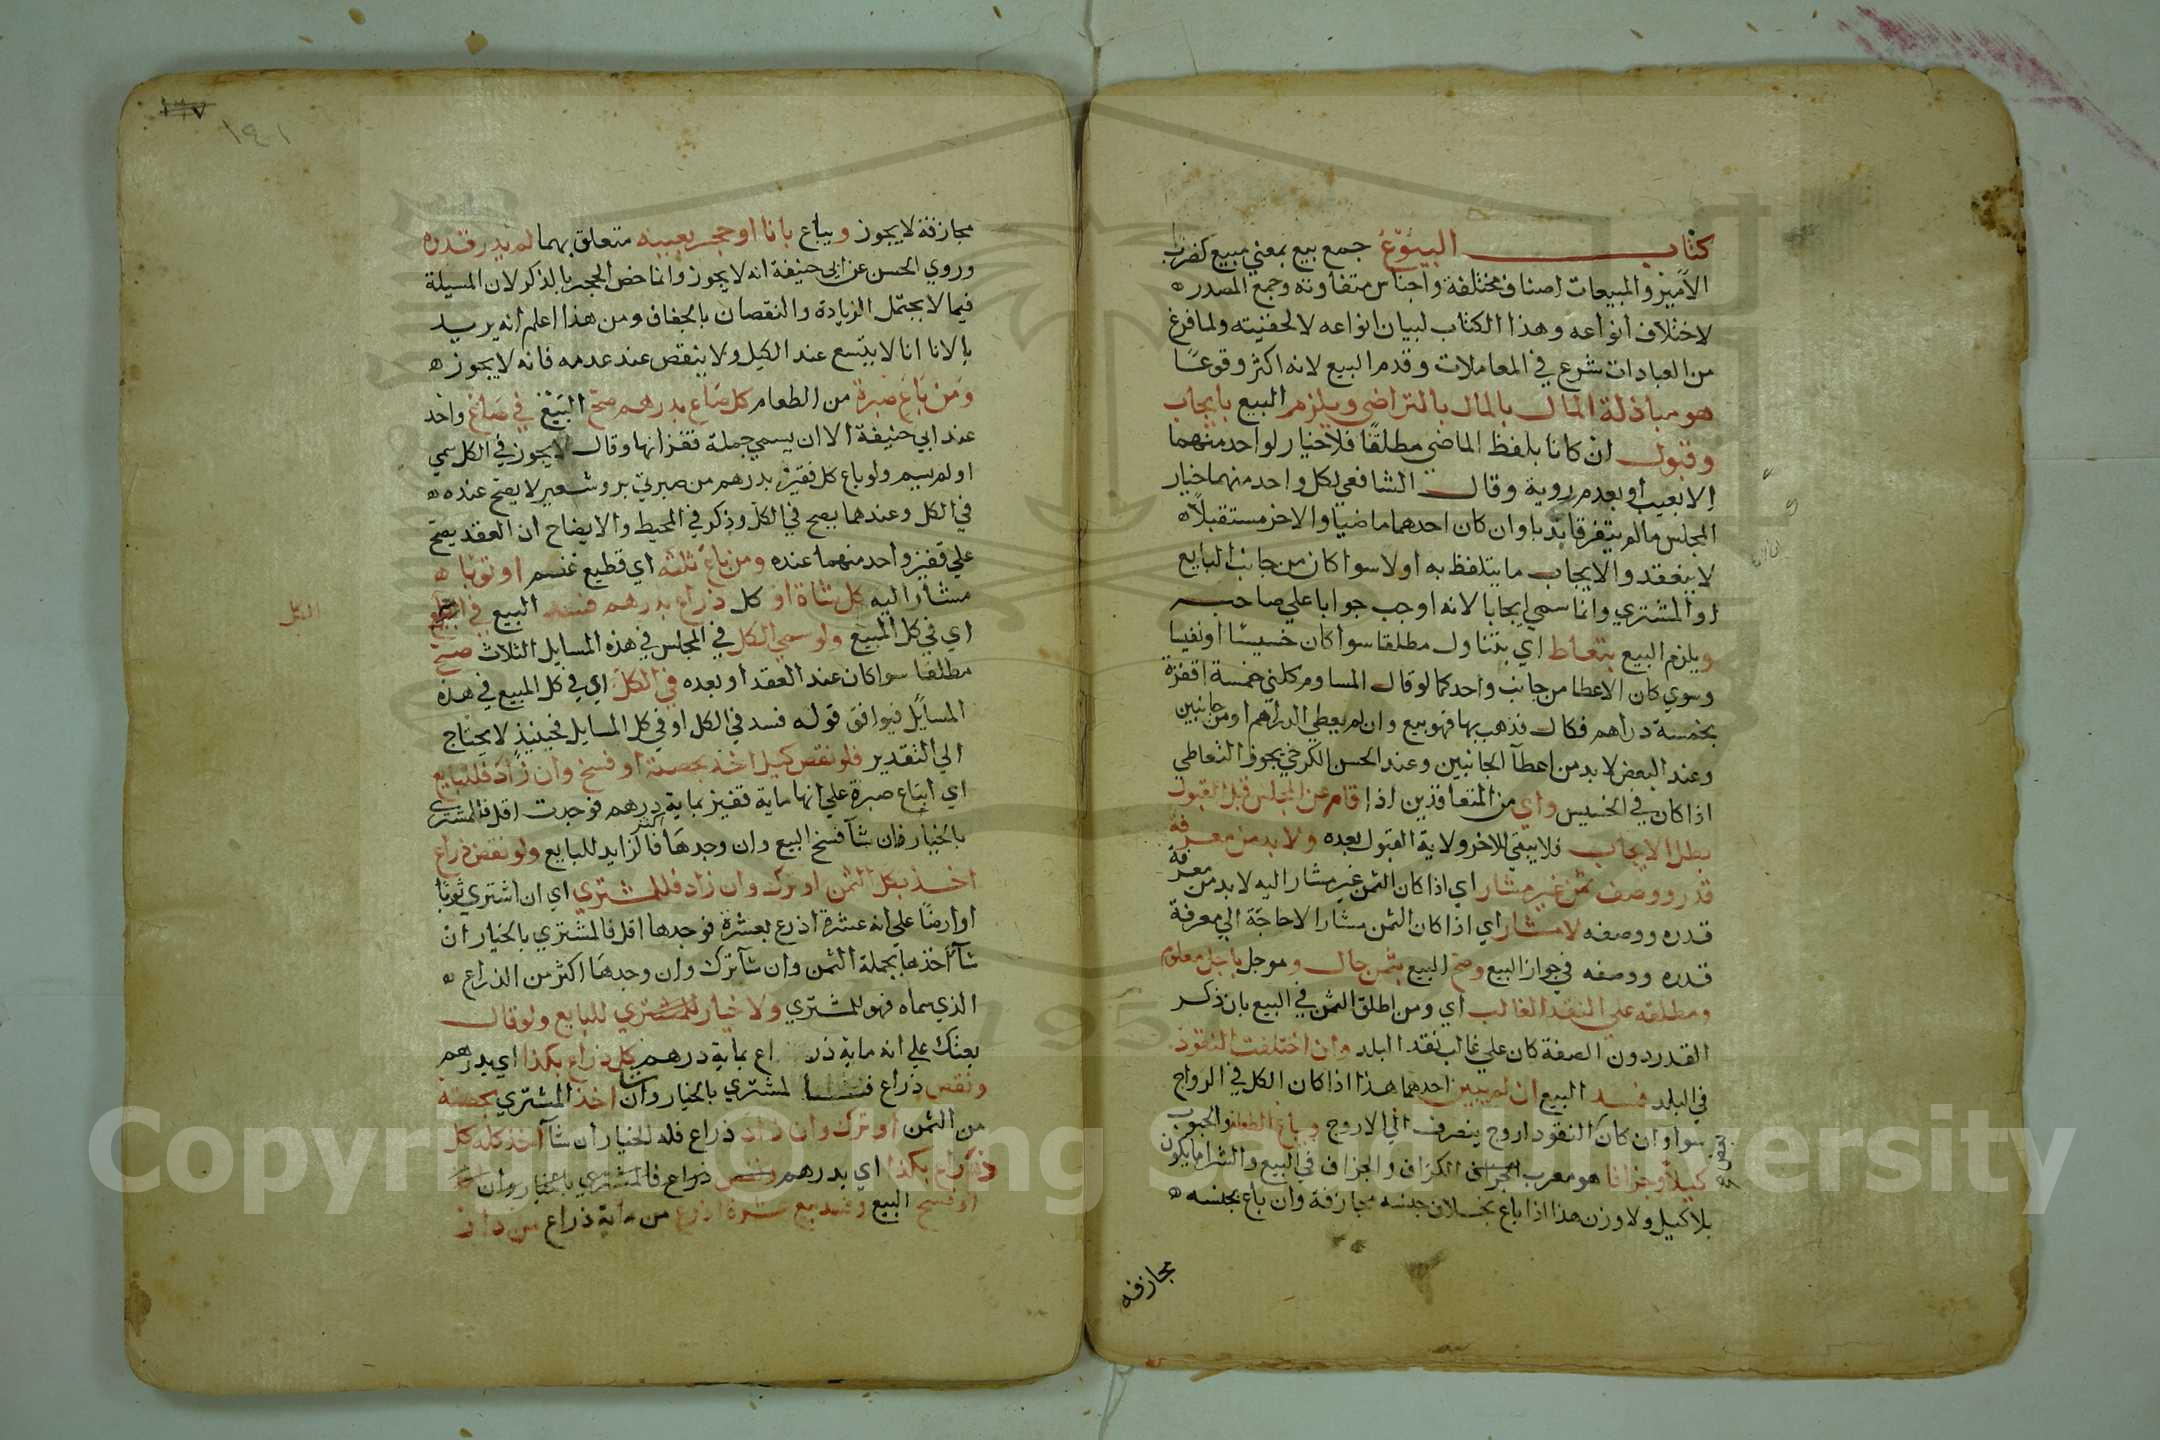 كتاب البيوع جمع بيع بمعني مبيع كضرب
الامير والمبيعات اصناف مختلفة واجناس متفاوته وجمع المصدر
لاختلاف انواعه وهذا الكتاب لبيان انواعه لا لحقيقته ولما فرغ
من العبادات شرع في المعاملات وقدم البيع لانه اكثر وقوعًا
هو مبادلة المال بالمال بالتراضي ويلزم البيع بايجاب
وقبول ان كانا بلفظ الماضي مطلقًا فلا خيار لواحد منهما
الا بعيب او بعدم روية وقال الشافعي لكل واحد منهما خيار
المجلس مالم يتفرقا بدبا وان كان احدهما ماضيا والاخر مستقبلاً
لا ينعقد والايجاب ما يتلفظ به اولا سوا كان من جانب البايع
او المشتري وانما سمي ايجابا لانه اوجب جوابا علي صاحبه
ويلزم البيع بتعاط اي بتناول مطلقا سوا كان خسيسًا او نفيسا
وسوي كان الاعطا من جانب واحد كما لو قال المساوم كلني خمسة اقفزة
بخمسة دراهم فكال فذهب بها فهو بيع وان لم يعطي الدراهم او من جانبين
وعند البعض لا بد من اعطآ الجانبين وعند الحسن الكرخي يجوز التعاطي
اذا كان في الخسيس واي من المتعاقدين اذا قام عن المجلس قبل القبول
بطل الايجاب فلا يبقي للاخر ولاية القبول بعده ولا بد من معرفة
قدر ووصف ثمن غير مشار اي اذا كان الثمن غير مشار اليه لا بد من معرفة
قدره ووصفه لا مشار اي اذا كان الثمن مشارا لا حاجة الي معرفة
قدره ووصفه في جواز البيع وصح البيع بثمن حال وموجل باجل معلوم
ومطلقه علي النقد الغالب اي ومن اطلق الثمن في البيع بان ذكر
القدر دون الصفة كان علي غالب نقد البلد وان اختلفت النقود
في البلد فسد البيع ان لم يبين احدهما هذا اذا كان الكل في الرواج
سوا وان كان النقود اروج ينصرف الي الاروج ويباع الطعام والحبوب
كيلاً وجزافا هو معرب الكزاف والجزاف في البيع والشرا ما يكون
بلا كيل ولا وزن هذا اذا باع بخلاف جنسه مجازفة وان باع بجنسه
مجازفه
١٤١
مجازفة لا يجوز ويباع بانا او حجر بعينه متعلق بهما لم يدر قدره
وروي الحسن عن ابي حنيفة انه لا يجوز وانما خص الحجر بالذكر لان المسيلة
فيما لا يحتمل الزيادة والنقصان بالجفاف ومن هذا اعلم انه يريد
بالانا انا لا يتسع عند الكيل ولا ينقص عند عدمه فانه لا يجوز
ومن باع صبرة من الطعام كل صاع بدرهم صح البيع في صاع واحد
عند ابي حنيفة الا ان يسمي جملة قفزانها وقال لا يجوز في الكل سمي
او لم يسم ولو باع كل قفيز بدرهم من صبرتي بر وشعير لا يصح عنده
في الكل وعندهما يصح في الكل وذكر في المحيط والايضاح ان العقد يصح
علي قفيز واحد منهما عنده ومن باع ثلثه اي قطيع غنم او ثوبا
مشارا اليه كل شاة او كل ذراع بدرهم فسد البيع في
الكل
اي في كل المبيع ولو سمي الكل في المجلس في هذه المسايل الثلاث صح
مطلقا سوا كان عند العقد او بعده في الكل اي في كل المبيع في هذه
المسايل فيوافق قوله فسد في الكل او في كل المسايل فحينيذ لا يحتاج
الي التقدير فلو نقص كيل اخذ بحصته او فسخ وان زاد فللبايع
اي ابتاع صبرة علي انها ماية قفيز بماية درهم فوجدت اقل فالمشتري
بالخيار فان شآ فسخ البيع وان وجدها اكثر فالزايد للبايع ولو نقص ذراع
اخذ بكل الثمن او ترك وان زاد فللمشتري اي ان اشتري ثوبا
او ارضا علي انه عشرة اذرع بعشرة فوجدها اقل فالمشتري بالخيار ان
شآ اخذها بجملة الثمن وان شآ ترك وان وجدها اكثر من الذراع
الذي سماه فهو للمشتري ولا خيار للمشتري للبايع ولو قال
بعتك علي انه ماية ذراع بماية درهم كل ذراع بكذا اي بدرهم
ونقص ذراع المشتري بالخيار وان اخذ المشتري بحصته
من الثمن او ترك وان زاد ذراع فله الخيار ان شآ اخذ كله كل
ذراع بكذا اي بدرهم ذراع فالمشتري بالخيار وان
او فسخ البيع وفسد بيع عشرة اذرع من ماية ذراع من دار
Copyright © King Saud University